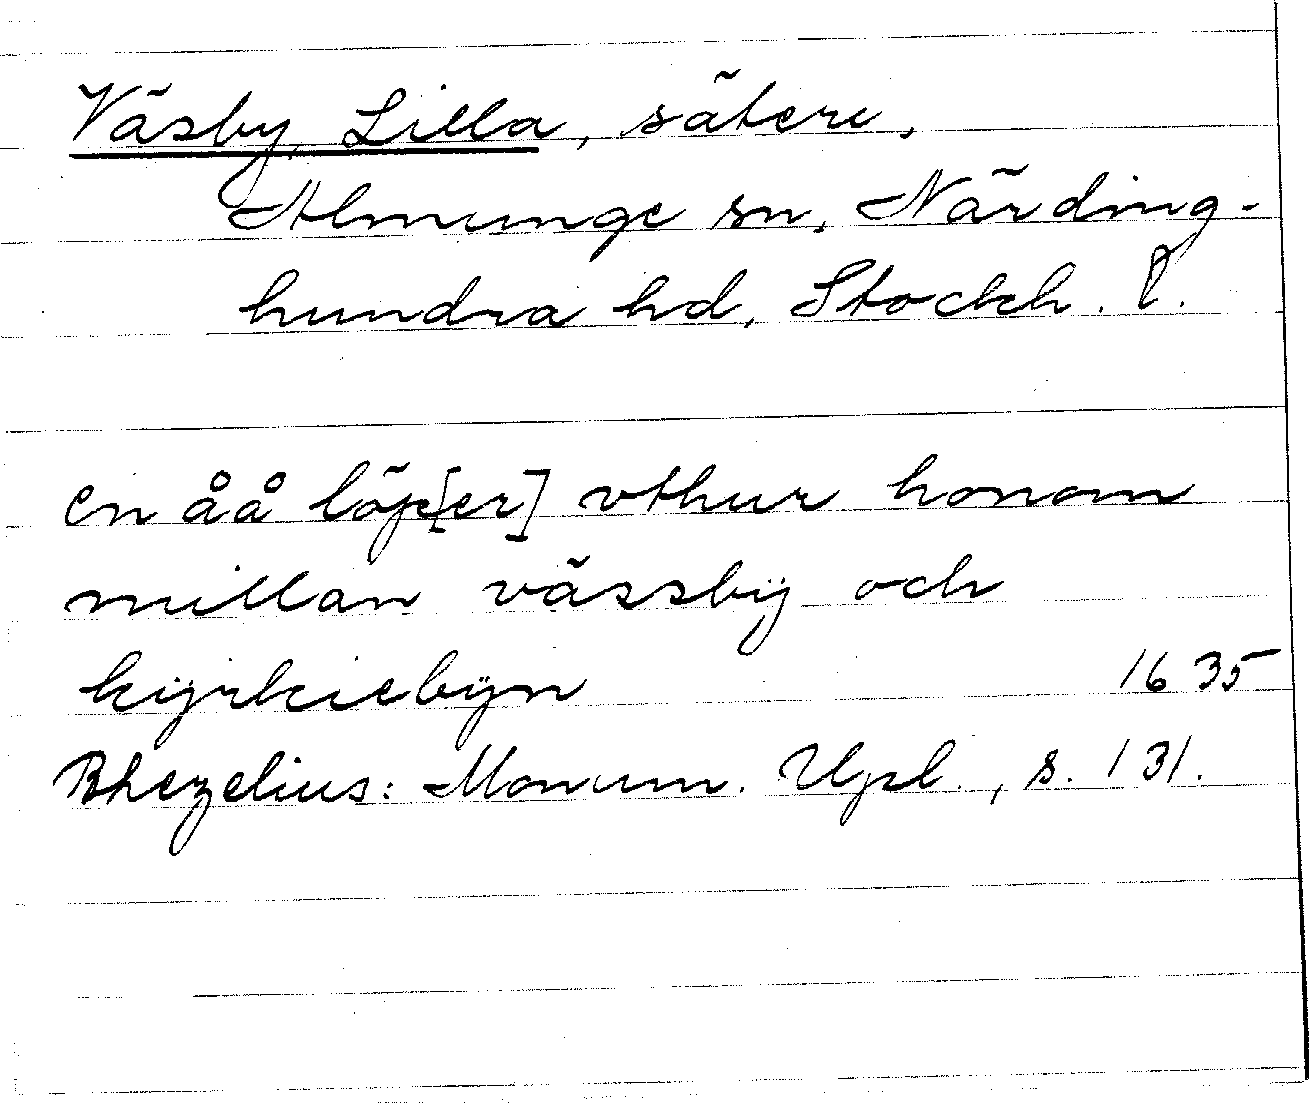 Väsby, Lilla, säteri,
Almunge sn, Närding-
hundra hd, Stockh. l.
en åå löp[er] vthur honom
millan vässbÿ och
kÿrkiebÿn 1635
Rhezelius: Monum. Upl., s. 131.